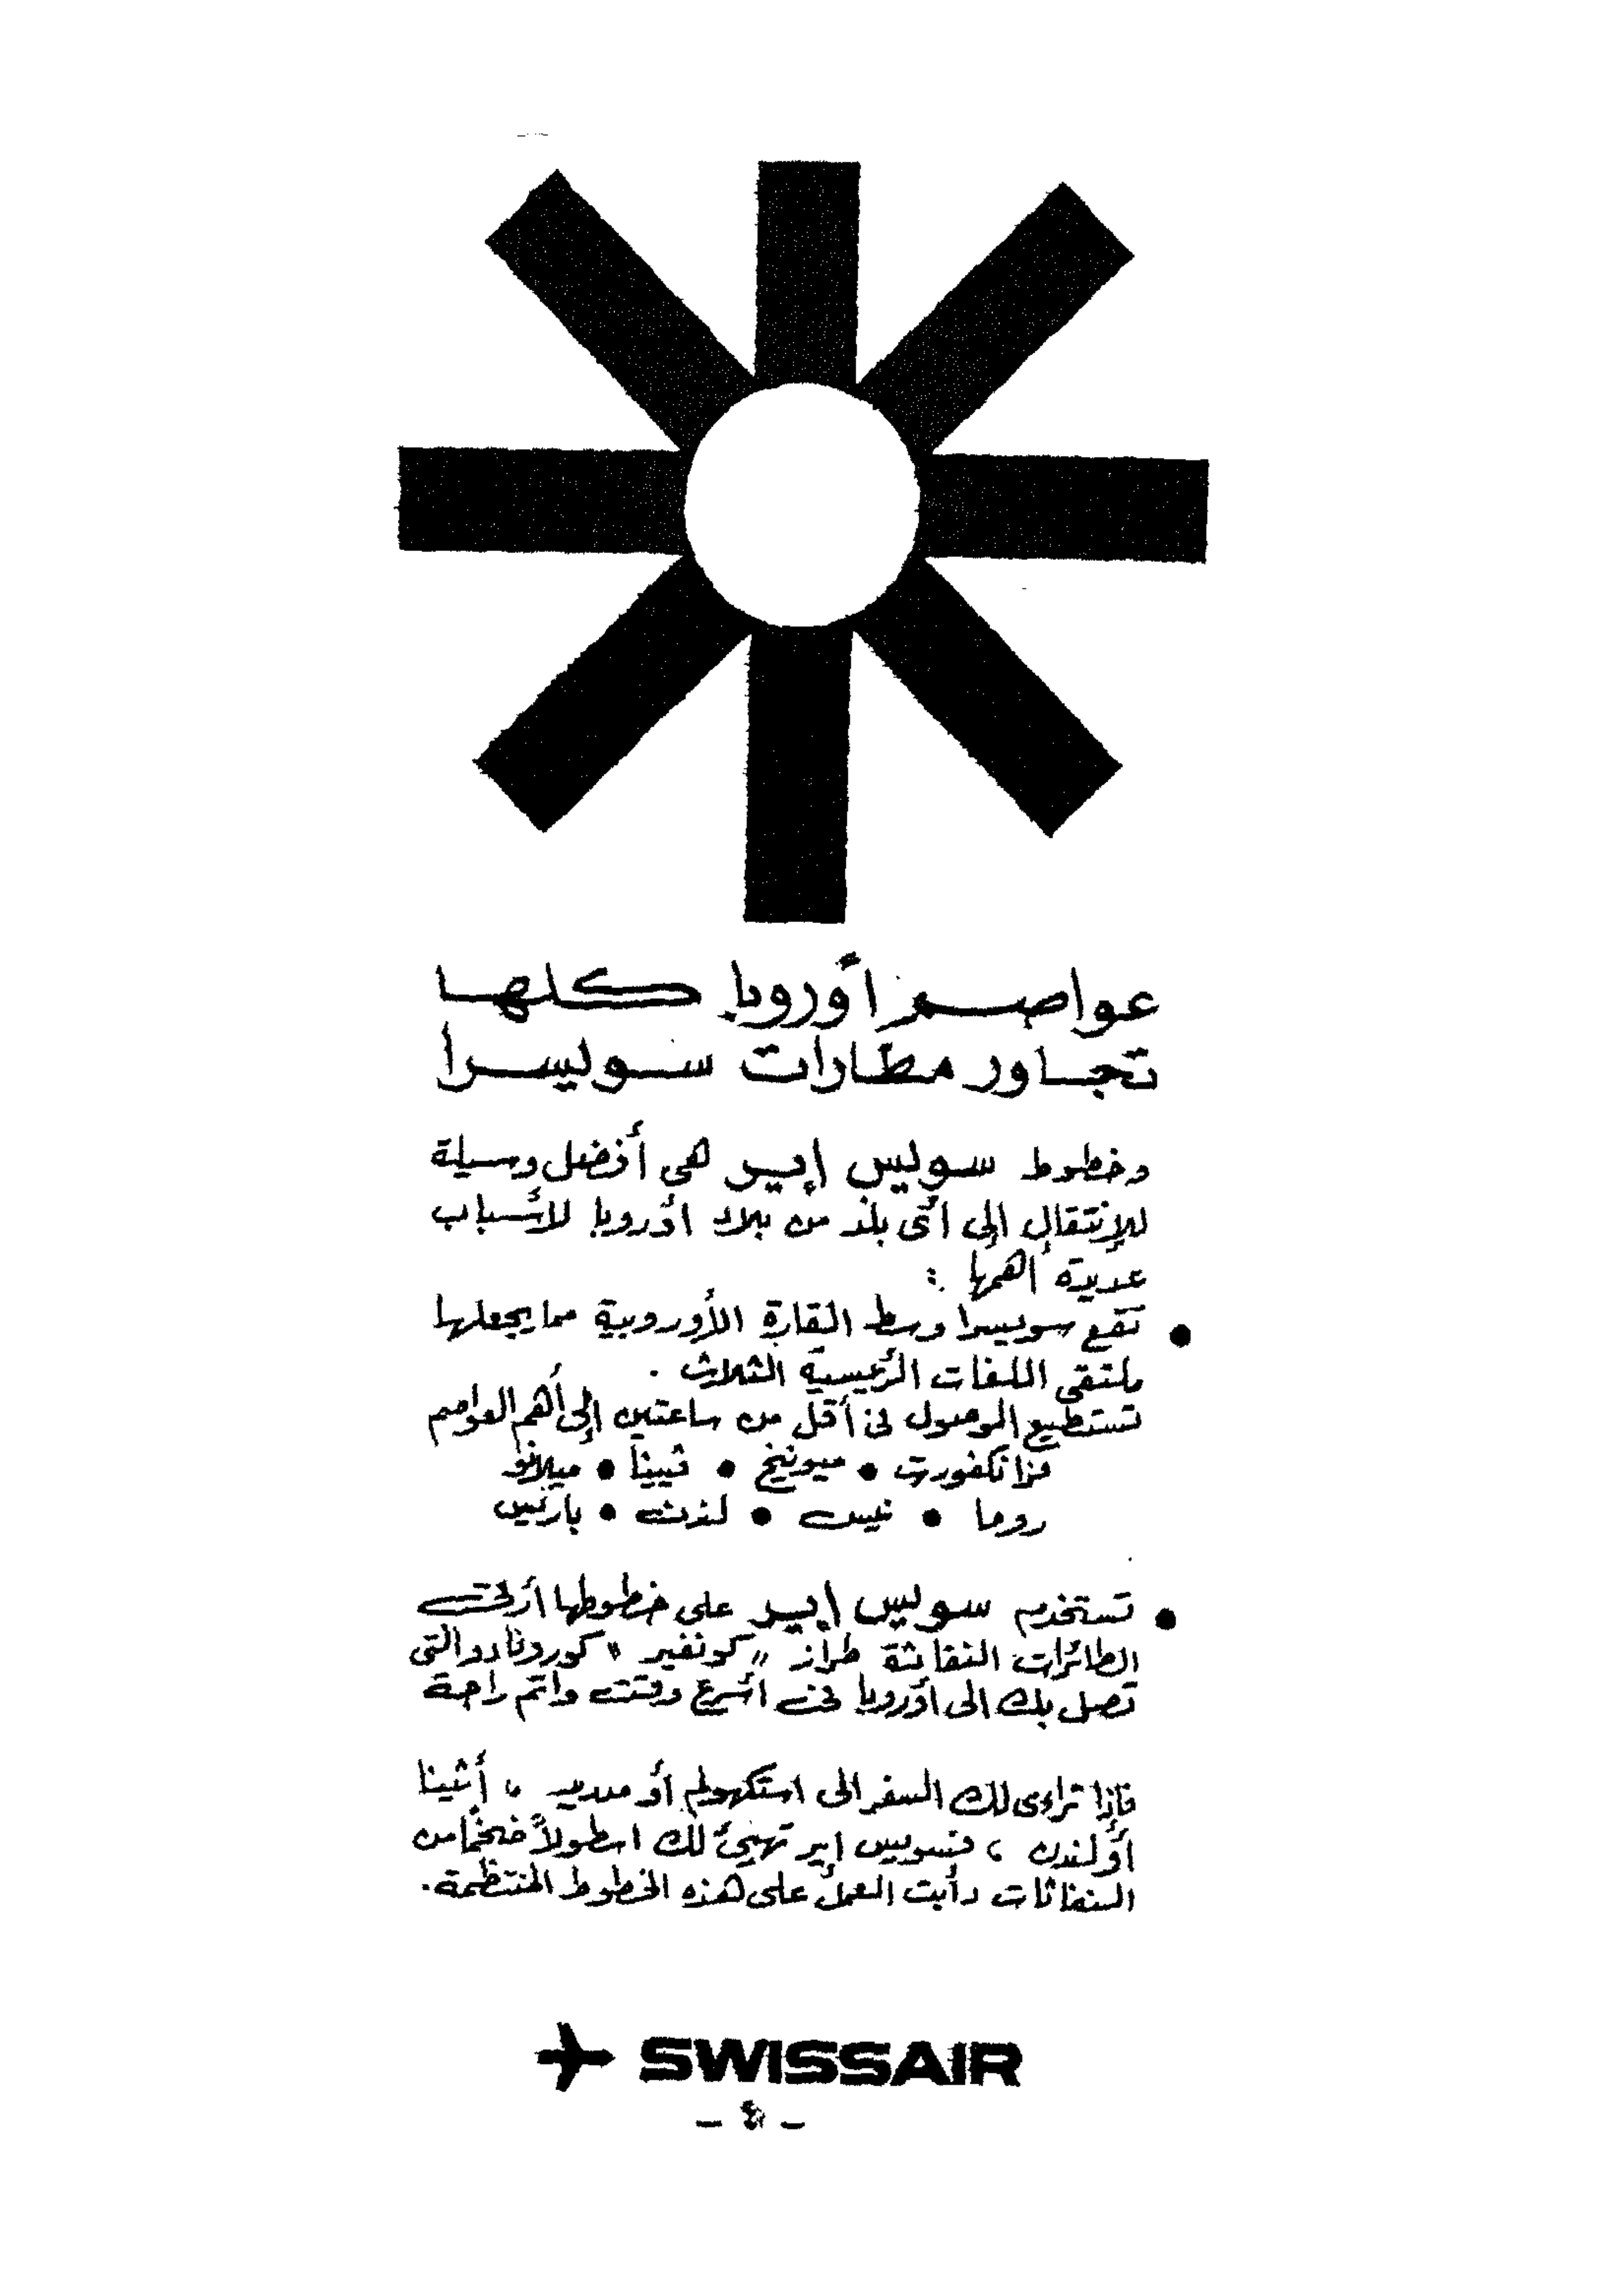 عواصم أوروبا كلها
تجاور مطارات سويسرا
وخطوط سويس إير هى أفضل وسيلة
للإنتقال إلى أى بلد من بلاد أوروبا لأسباب
عديدة أهمها :
● تقع سويسرا وسط القارة الأوروبية مما يجعلها
ملتقى اللغات الرئيسية الثلاث .
تستطيع الوصول فى أقل من ساعتين إلى أهم العواصم
فرانكفورت ● ميونيخ ● فيينا ● ميلانو
روما ● نيس ● لندن ● باريس
● تستخدم سويس إير على خطوطها أرقى
الطائرات النفاثة طراز "كونفير" كورونادو التى
تصل بك الى أوروبا فى أسرع وقت واتم راحة
فإذا تراءى لك السفر الى استكهولم أو مدريد ، أثينا
أو لندن ، فسويس اير تهيئ لك اسطولاً ضخماً من
النفاثات دأبت العمل على هذه الخطوط المنتظمة.
SWISSAIR